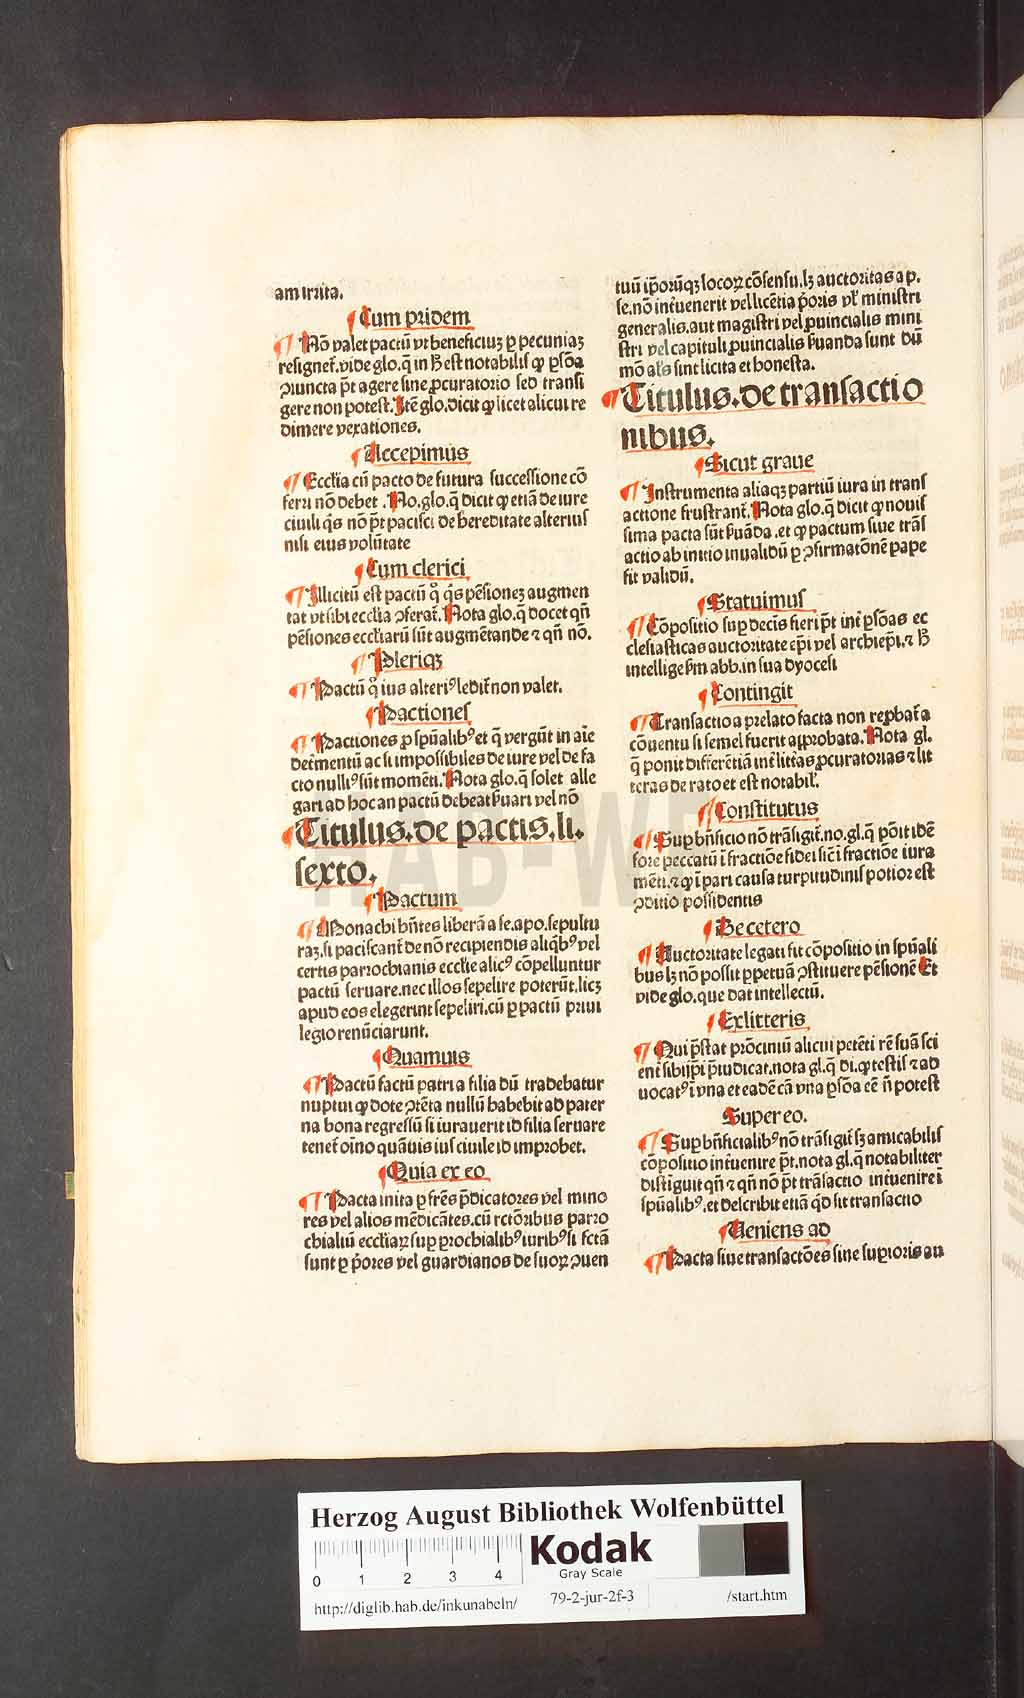 am irrita.
Cum pridem
Nō valet pactū vt beneficiuʒ ꝑ pecuniaʒ
resignet᷑. vide glo. q̄ in ħ est notabilis ꝙ ꝑsōa
ꝯiuncta p̄t agere sine ꝓcuratorio sed transi
gere non potest. Itē glo. dicit ꝙ licet alicui re
dimere vexationes.
Accepimus
Eccl̄ia cū pacto de futura successione cō
ferri nō debet. No. glo. q̄ dicit ꝙ etiā de iure
ciuili q̇s nō p̄t pacisci de hereditate alterius
nisi eius volūtate
Cum clerici
Illicitū est pactū qͦ q̇s pēsioneʒ augmen
tat vt sibi ecclia ꝯferat᷑. Nota glo. q̄ docet qn̄
pēsiones eccliarū sūt augmētande ⁊ qn̄ nō.
Pleriqꝫ
Pactū qͦ ius alteriꝰ ledit᷑ non valet.
Pactiones
Pactiones ꝓ spūalibꝰ et q̄ vergūt in aīe
det᷑mentū ac si impossibiles de iure vel de fa
cto nulliꝰ sūt momēti. Nota glo. q̄ solet alle
gari ad hoc an pactū debeat ẜuari vel nō
Titulus. de pactis. li.
sexto.
Pactum
Monachi hn̄tes liberā a se. apo. sepultu
raʒ. si paciscant᷑ de nō recipiendis aliq̇bꝰ vel
certis parrochianis ecclie alicꝰ cōpelluntur
pactū seruare. nec illos sepelire poterūt. licʒ
apud eos elegerint sepeliri. cū ꝑ pactū priui
legio renūciarunt.
Quamuis
Pactū factū patri a filia dū tradebatur
nuptui ꝙ dote ꝯtēta nullū habebit ad pater
na bona regressū si iurauerit id filia seruare
tenet᷑ oīno quāuis ius ciuile id improbet.
Quia ex eo
Pacta inita ꝑ frēs p̄dicatores vel mino
res vel alios mēdicātes. cū rctōribus parro
chialiū eccliaꝝ suꝑ ꝑrochialibꝰ iuribꝰ si fctā
sunt ꝑ p̄ores vel guardianos de suoꝝ ꝯuen
tuū ip̄orūqꝫ locoꝝ cōsensu. lʒ auctoritas ap.
se. nō int᷑uenerit vel licētia p̄oris vl᷑ ministri
generalis. aut magistri vel ꝓuincialis mini
stri vel capituli ꝓuincialis ẜuanda sunt dū
mō al̄s sint licita et honesta.
Titulus. de transactio
nibus.
Sicut graue
Instrumenta aliaqꝫ partiū iura in trans
actione frustrant᷑. Nota glo. q̄ dicit ꝙ nouis
sima pacta sūt ẜuāda. et ꝙ pactum siue trās
actio ab initio inualidū ꝑ ꝯfirmatōnē pape
fit validū.
Statuimus
Cōpositio suꝑ decis fieri p̄t int᷑ ꝑsōas ec
clesiasticas auctoritate ep̄i vel archiep̄i. ⁊ ħ
intellige ẜm abb. in sua dyocesi
Contingit
Transactio a prelato facta non reꝓbat᷑ a
cōuentu si semel fuerit approbata. Nota gl.
q̄ ponit differētiā int᷑ litt᷑as ꝓcuratorias ⁊ litt
teras de rato et est notabil᷑.
Constitutus
Suꝑ bn̄ficio nō trāsigit᷑. no. gl. q̄ pōit idē
fore peccatū ī fractiōe fidei sic̄ ī fractiōe iura
mēti. ⁊ ꝙ ī pari causa turpitudinis potior est
ꝯditio possidentis
De cetero
Auctoritate legati fit cōpositio in spūali
bus lʒ nō possit ꝑpetuā ꝯstituere pēsionē Et
vide glo. que dat intellectū.
Ex litteris
Qui p̄stat prōciniū alicui petēti rē suā sci
ent᷑ sibiip̄i p̄iudicat. nota gl. q̄ di. ꝙ testis ⁊ ad
uocatꝰ ī vna et eadē cā vna ꝑsōa eē n̄ potest
Super eo.
Suꝑ bn̄ficialibꝰ nō trāsigit᷑ sʒ amicabilis
cōpositio int᷑uenire p̄t. nota gl. q̄ notabiliter
distiguit qn̄ ⁊ qn̄ nō p̄t trāsactio int᷑uenire ī
spūalibꝰ. et describit etiā qͥd sit transactio
Veniens ad
Pacta siue transactōes sine suꝑioris au
HAB-WF
Herzog August Bibliothek Wolfenbüttel
0 1 2 3 4
Kodak
Gray Scale
http://diglib.hab.de/inkunabeln/ 79-2-jur-2f-3 /start.htm